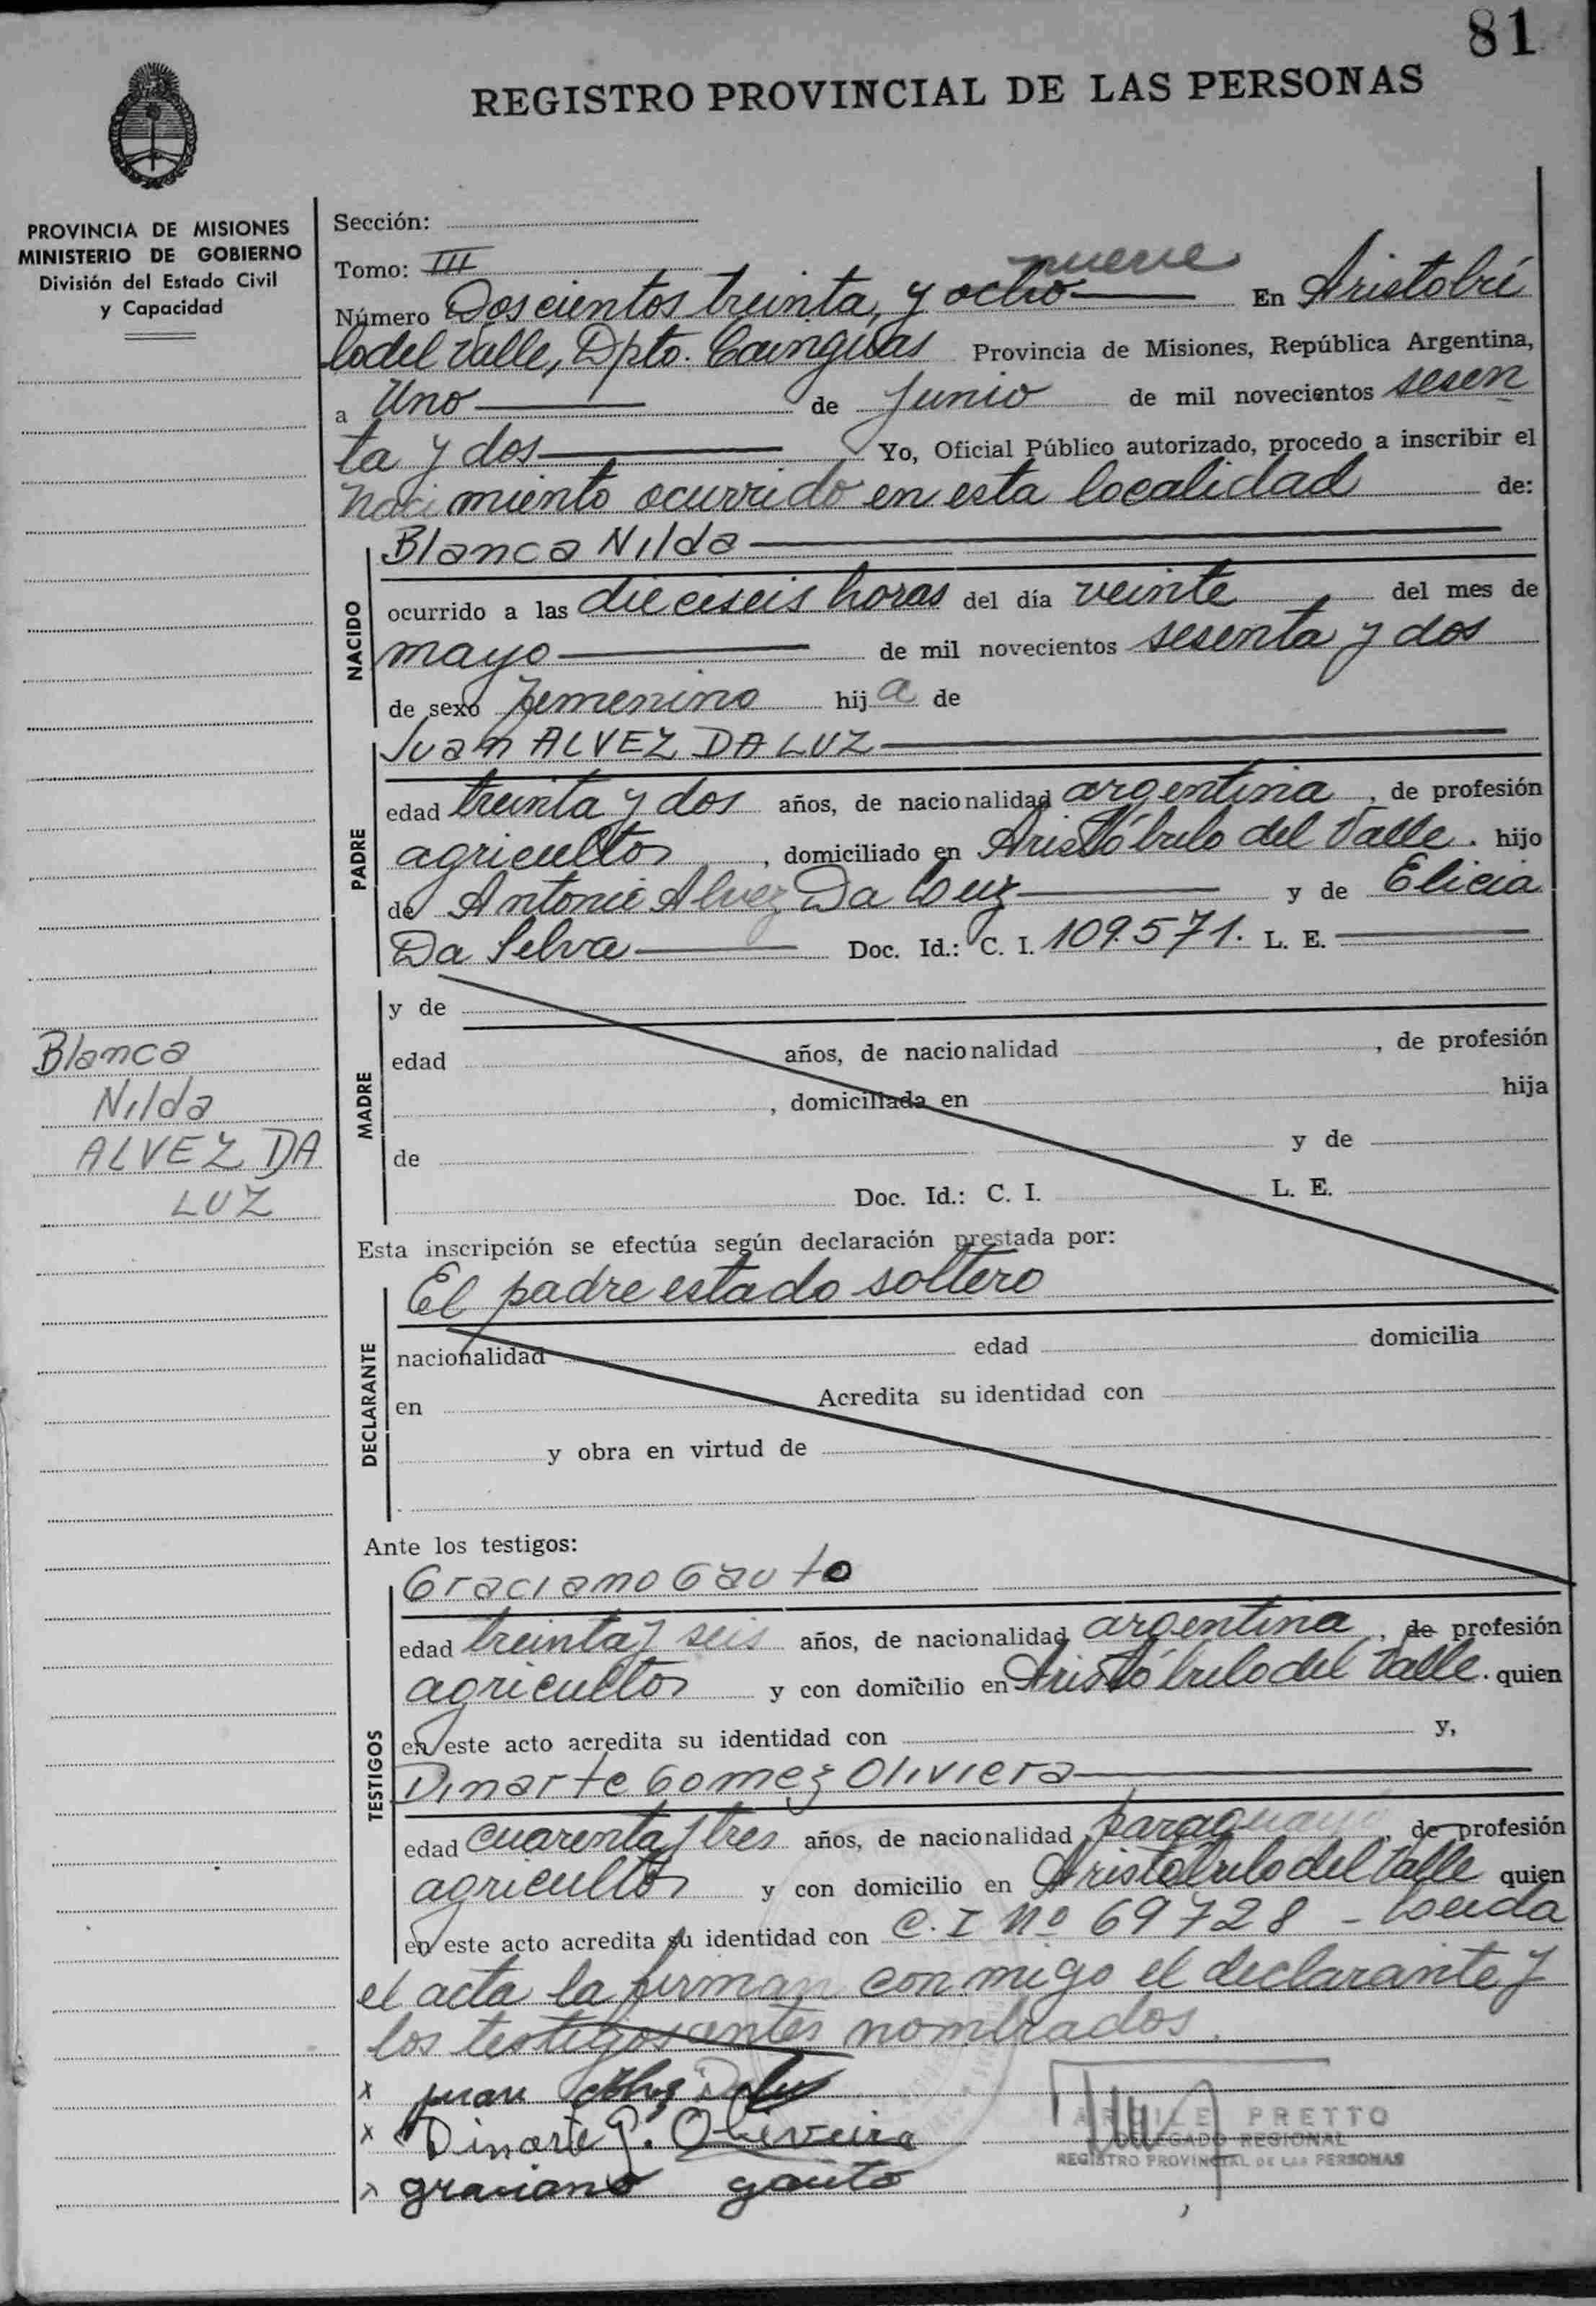 81
REGISTRO PROVINCIAL DE LAS PERSONAS
PROVINCIA DE MISIONES
MINISTERIO DE GOBIERNO
División del Estado Civil
y Capacidad
Sección:
Tomo: III
nueve
Número Doscientos treinta y ocho En Aristóbu
lo del Valle, Dpto. Cainguas Provincia de Misiones, República Argentina,
a Uno de Junio de mil novecientos sesen
ta y dos Yo, Oficial Público autorizado, procedo a inscribir el
nacimiento ocurrido en esta localidad de:
NACIDO
Blanca Nilda
ocurrido a las dieciseis horas del día veinte del mes de
mayo de mil novecientos sesenta y dos
de sexo femenino hija de
PADRE
Juan ALVEZ DA LUZ
edad treinta y dos años, de nacionalidad argentina, de profesión
agricultor, domiciliado en Aristóbulo del Valle. hijo
de Antonio Alvez Da Luz y de Elicia
Da Selva Doc. Id.: C. I. 109.571. L. E.
MADRE
y de
edad años, de nacionalidad , de profesión
, domiciliada en hija
de y de
Doc. Id.: C. I. L. E.
Blanca
Nilda
ALVEZ DA
LUZ
Esta inscripción se efectúa según declaración prestada por:
DECLARANTE
El padre estado soltero
nacionalidad edad domicilia
en Acredita su identidad con
y obra en virtud de
Ante los testigos:
TESTIGOS
Graciano Gauto
edad treinta y seis años, de nacionalidad argentina, de profesión
agricultor y con domicilio en Aristóbulo del Valle. quien
en este acto acredita su identidad con y,
Dinarte Gomez Oliviera
edad cuarenta y tres años, de nacionalidad paraguaya, de profesión
agricultor y con domicilio en Aristobulo del Valle quien
en este acto acredita su identidad con C. I Nº 69728 - Leida
el acta la firman conmigo el declarante y
los testigos antes nombrados.
x juan Alvez Da Luz
x Dinarte G. Oliveira
x graciano gauto
PRETTO
DELEGADO REGIONAL
REGISTRO PROVINCIAL DE LAS PERSONAS